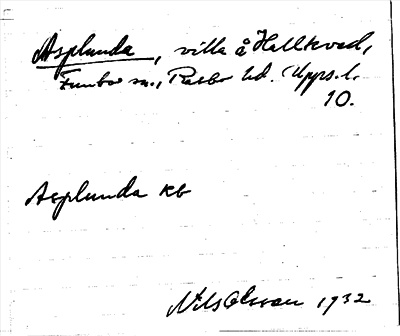 Asplunda, villa å Hallkved,
Funbo sn., Rasbo hd. Upps. l.
10.
Asplunda kb
Nils Olsson 1932